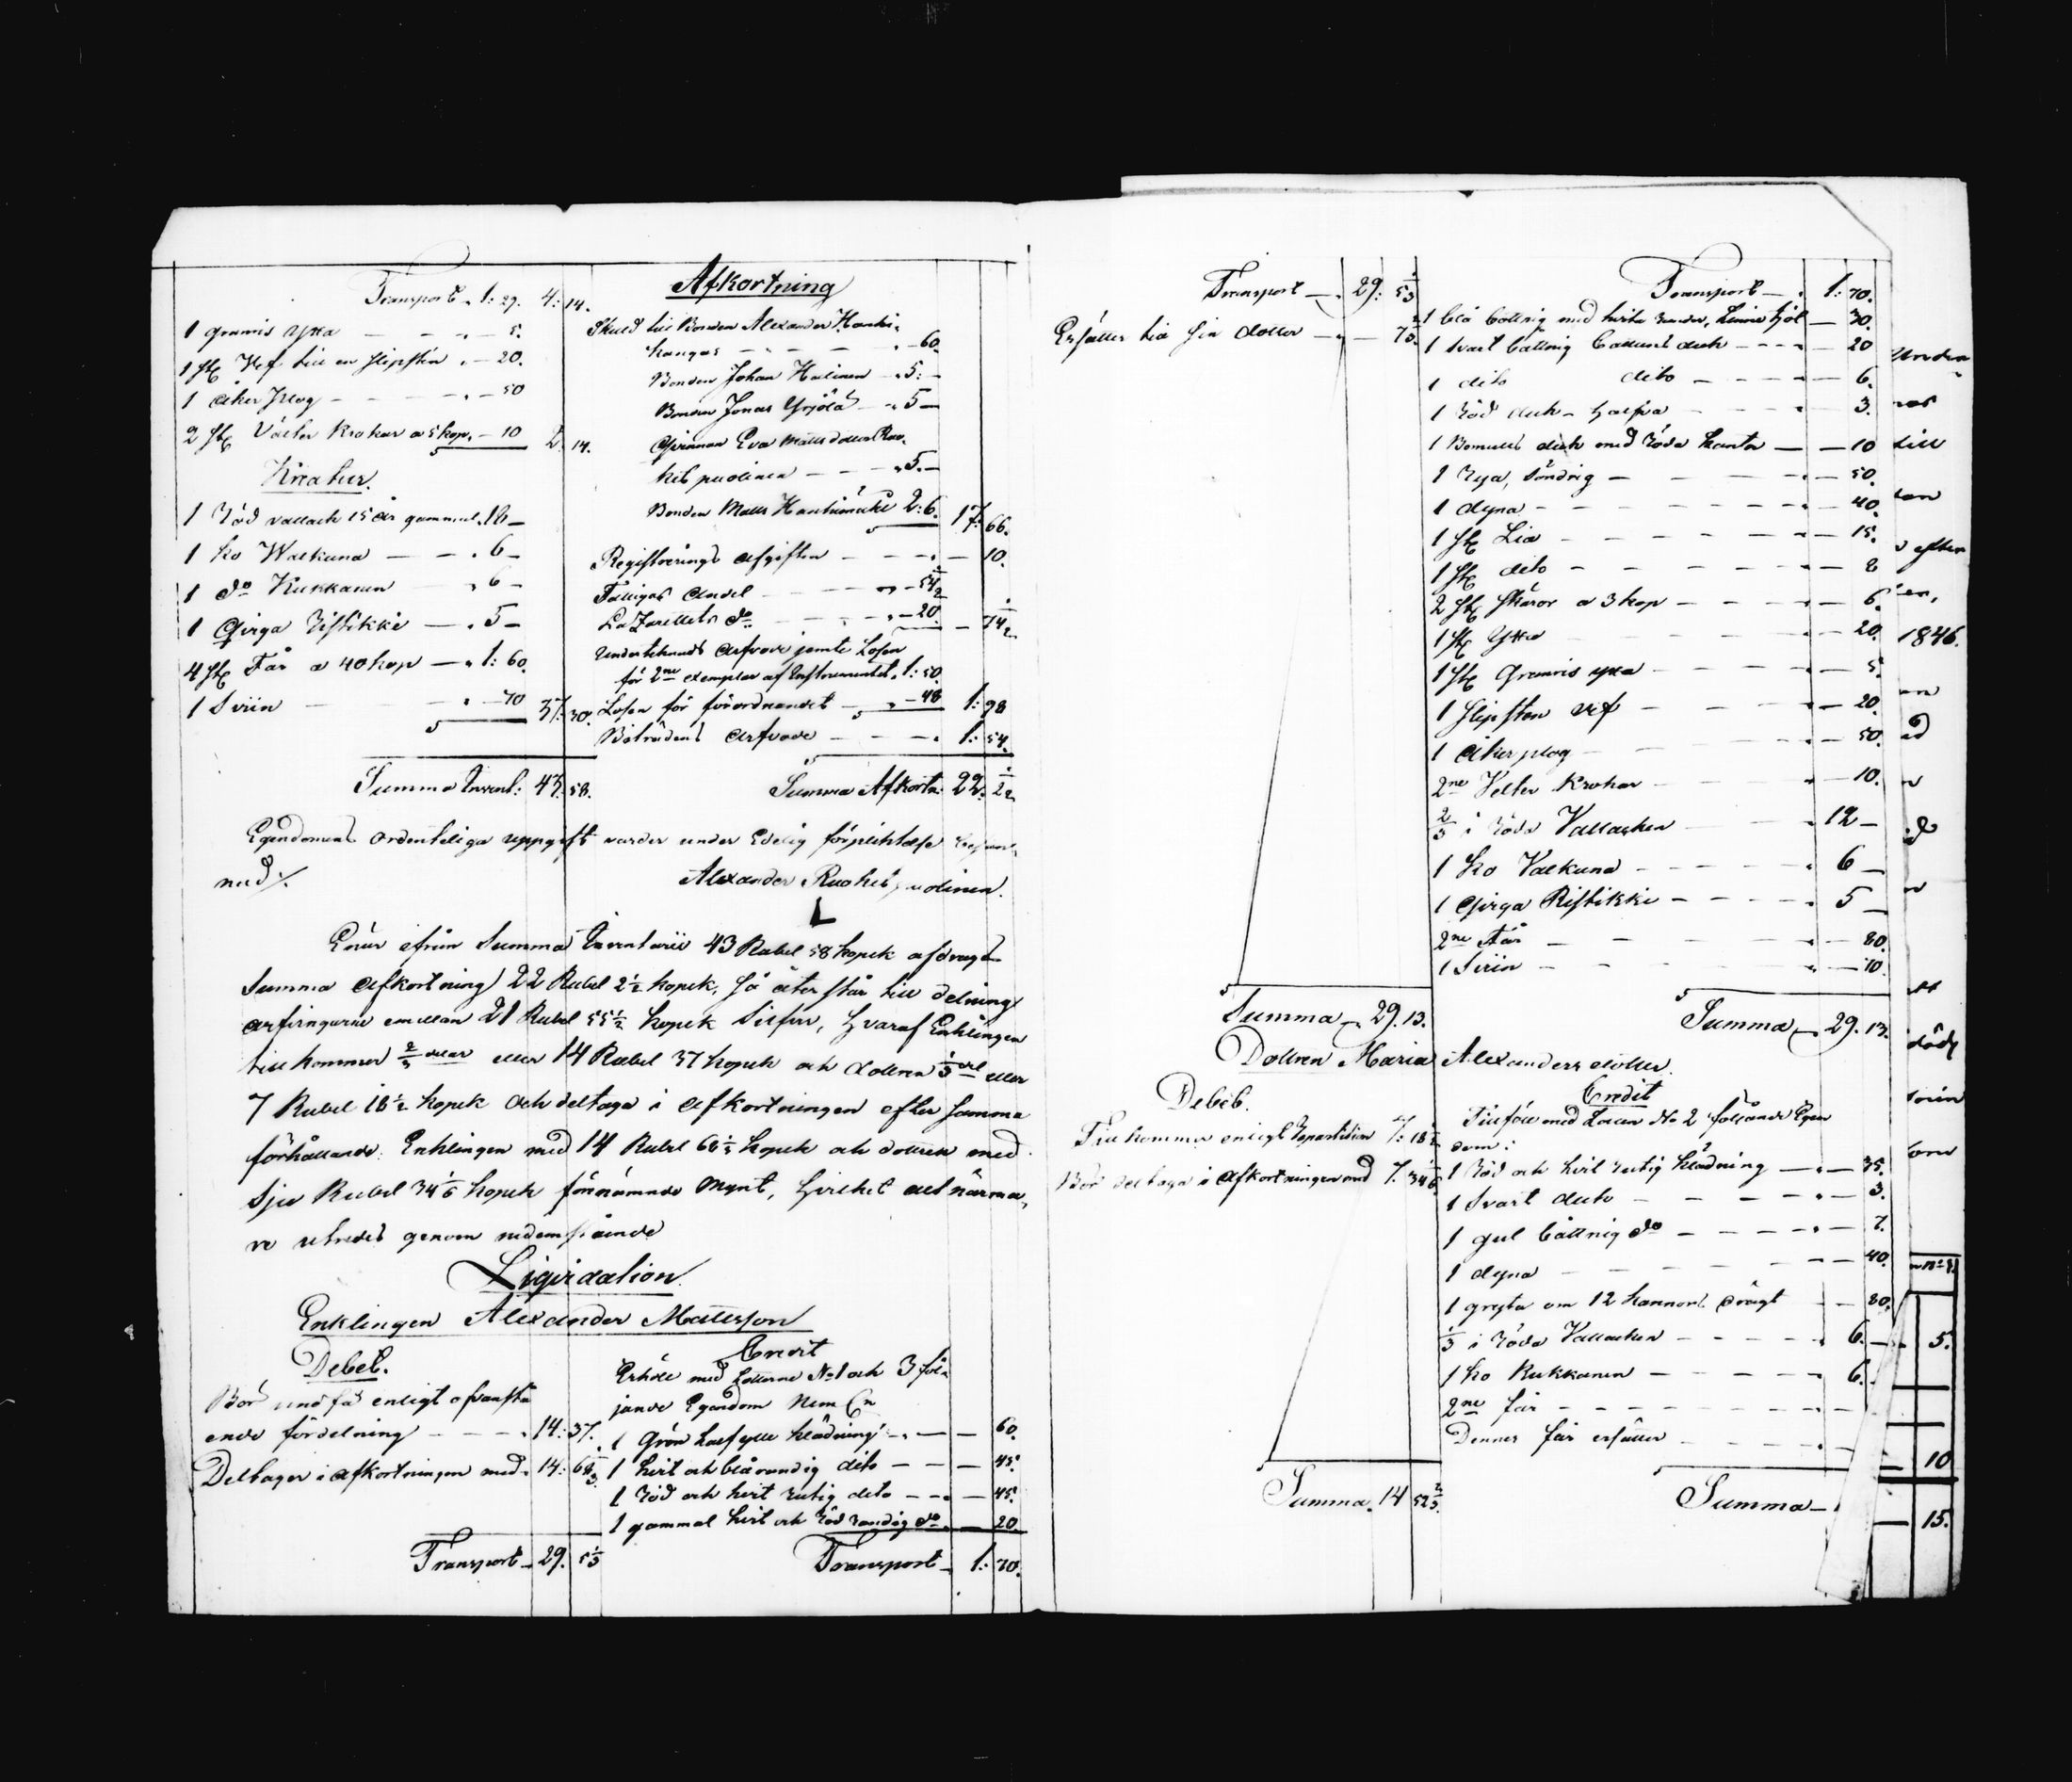 Transport „ 1: 29. 4: 14.
1 gramis yxa — — „ — 5.
1 st. Vef till en slipsten „ — 20.
1 åker plog — — „ — 50
2 st. Välter krokar a 5 kop. — 10 2. 14.
Kreatur.
1 röd vallack 15 år gammal „ 18 —
1 ko Walkuna — — „ 6 —
1 do Kukkanen „ 6 —
1 Qviga Ristikki — „ 5 —
4 st. Får a 40 kop — „ 1: 60.
1 Sviin — „ — 70 37: 30.
Summa Invent: 43. 58.
Afkortning
Skuld till Bonden Alexander Hanhi-
kangas — — — „ — 60.
Bonden Johan Hakinen „ 5: —
Bonden Jonas Yrjölä „ 5 —
Qvinnan Eva Matts dotter Ruo-
hikpuolinen — — „ 5. —
Bonden Matts Hanhimäki 2: 6. 17: 66.
Registrerings afgiften — — „ — 10.
Fattigas andel „ — 54 ½
Lazarettets do „ — 20. — 74 ½
Undertecknads arfvode jemte Lösen
för 2ne exemplar af Instrumentet „ 1: 50.
Lösen för förordnandet — „ — 48 1: 98
Biträdens arfvode — — 1: 54.
Summa Afkortn: 22: 2 ½
Egendomens ordenteliga uppgift varder under Edelig förplichtelse
med ./.
Alexander Ruohikpuolinen.
L
Enär ifrån Summa Inventarii 43 Rubel 58 kopek afdragas
Summa afkortning 22 Rubel 2 ½ kopek, så återstår till delning
arfvingarne emellan 21 Rubel 55 ½ kopek Silfver, hvaraf Enklingen
tillkommer 2/3 delar eller 14 Rubel 37 kopek och dottren 1/3 del eller
7 Rubel 18 ½ kopek och deltaga i afkortningen efter samma
förhållande: Enklingen med 14 Rubel 68 1/3 kopek och dottren med
sju Rubel 34 1/6 kopek förenämnde mynt, hvilket allt närma-
re utredes genom nedanstående
Liqvidation
Enklingen Alexander Mattsson
Debet.
Bör undfå enligt ofvanstå
ende fördelning — — — 14: 37.
Deltager i afkortningen med „ 14: 68 1/3
Transport „ 29. 5 1/3
Credit
Erhöll med Lotterne No 1 och 3 föl-
jande Egendom Nem En
1 Grön half ylle klädning „ — 60.
1 hvit och blårandig dito — — — 45.
1 röd och hvit rutig dito — — — 45.
1 gammal hvit och röd randig do — 20.
Transport „ 1: 70.
Transport — „ 29: 5 1/3
Ersätter till sin dotter — „ — 7 2/3.
Summa „ 29. 13.
Transport — „ 1: 70.
1 blå bottnig med hvita ränder, Linne kjol — 30.
1 svart bottnig Cattuns duk — — — „ — 20
1 dito dito — — — „ — 6.
1 röd duk — — — „ — 3.
1 Bomulls duk med röda kanta — — 10
1 rya, söndrig — — — „ — 50.
1 dyna — — — — „ — 40.
1 st. Lia — — — „ — 15.
1 st. dito — — — „ — 8
2 st. skäror a 3 kop — — — „ — 6.
1 st. yxa — — — „ — 20.
1 st. Gramis yxa — — — „ — 5.
1 slipsten vef — — — „ — 20.
1 åkerplog — — — „ — 50.
2ne Velter krokar — — „ — 10.
2/3 i röda Vallacken — „ 12 —
1 ko Valkuna — — — „ 6 —
1 Qviga Ristikki — — — „ 5 —
2ne Får — — — „ — 80.
1 Sviin — — — „ — 70.
Summa „ 29. 13.
Dottren Maria Alexanders dotter.
Debet.
Tillkommer enligt Repartition 7: 18 ½
Bör deltaga i afkortningen med 7. 34 1/6
Summa 14 52 2/3.
Credit
Tillföll med Lotten No 2 följande Egen
dom:
1 röd och hvit rutig klädning — „ — 35.
1 svart duk — — — „ — 3.
1 gul bottnig do — — — „ — 7.
1 dyna — — — — 40.
1 gryta om 12 kannors drägt — — 80.
1/3 i röda Vallacken — — — „ 6. —
1 ko Kukkanen — — — „ 6.
2ne får — — — — „ —
Dennes far ersätter — — — „ —
Summa —
till
efter
1846.
5.
10
15.